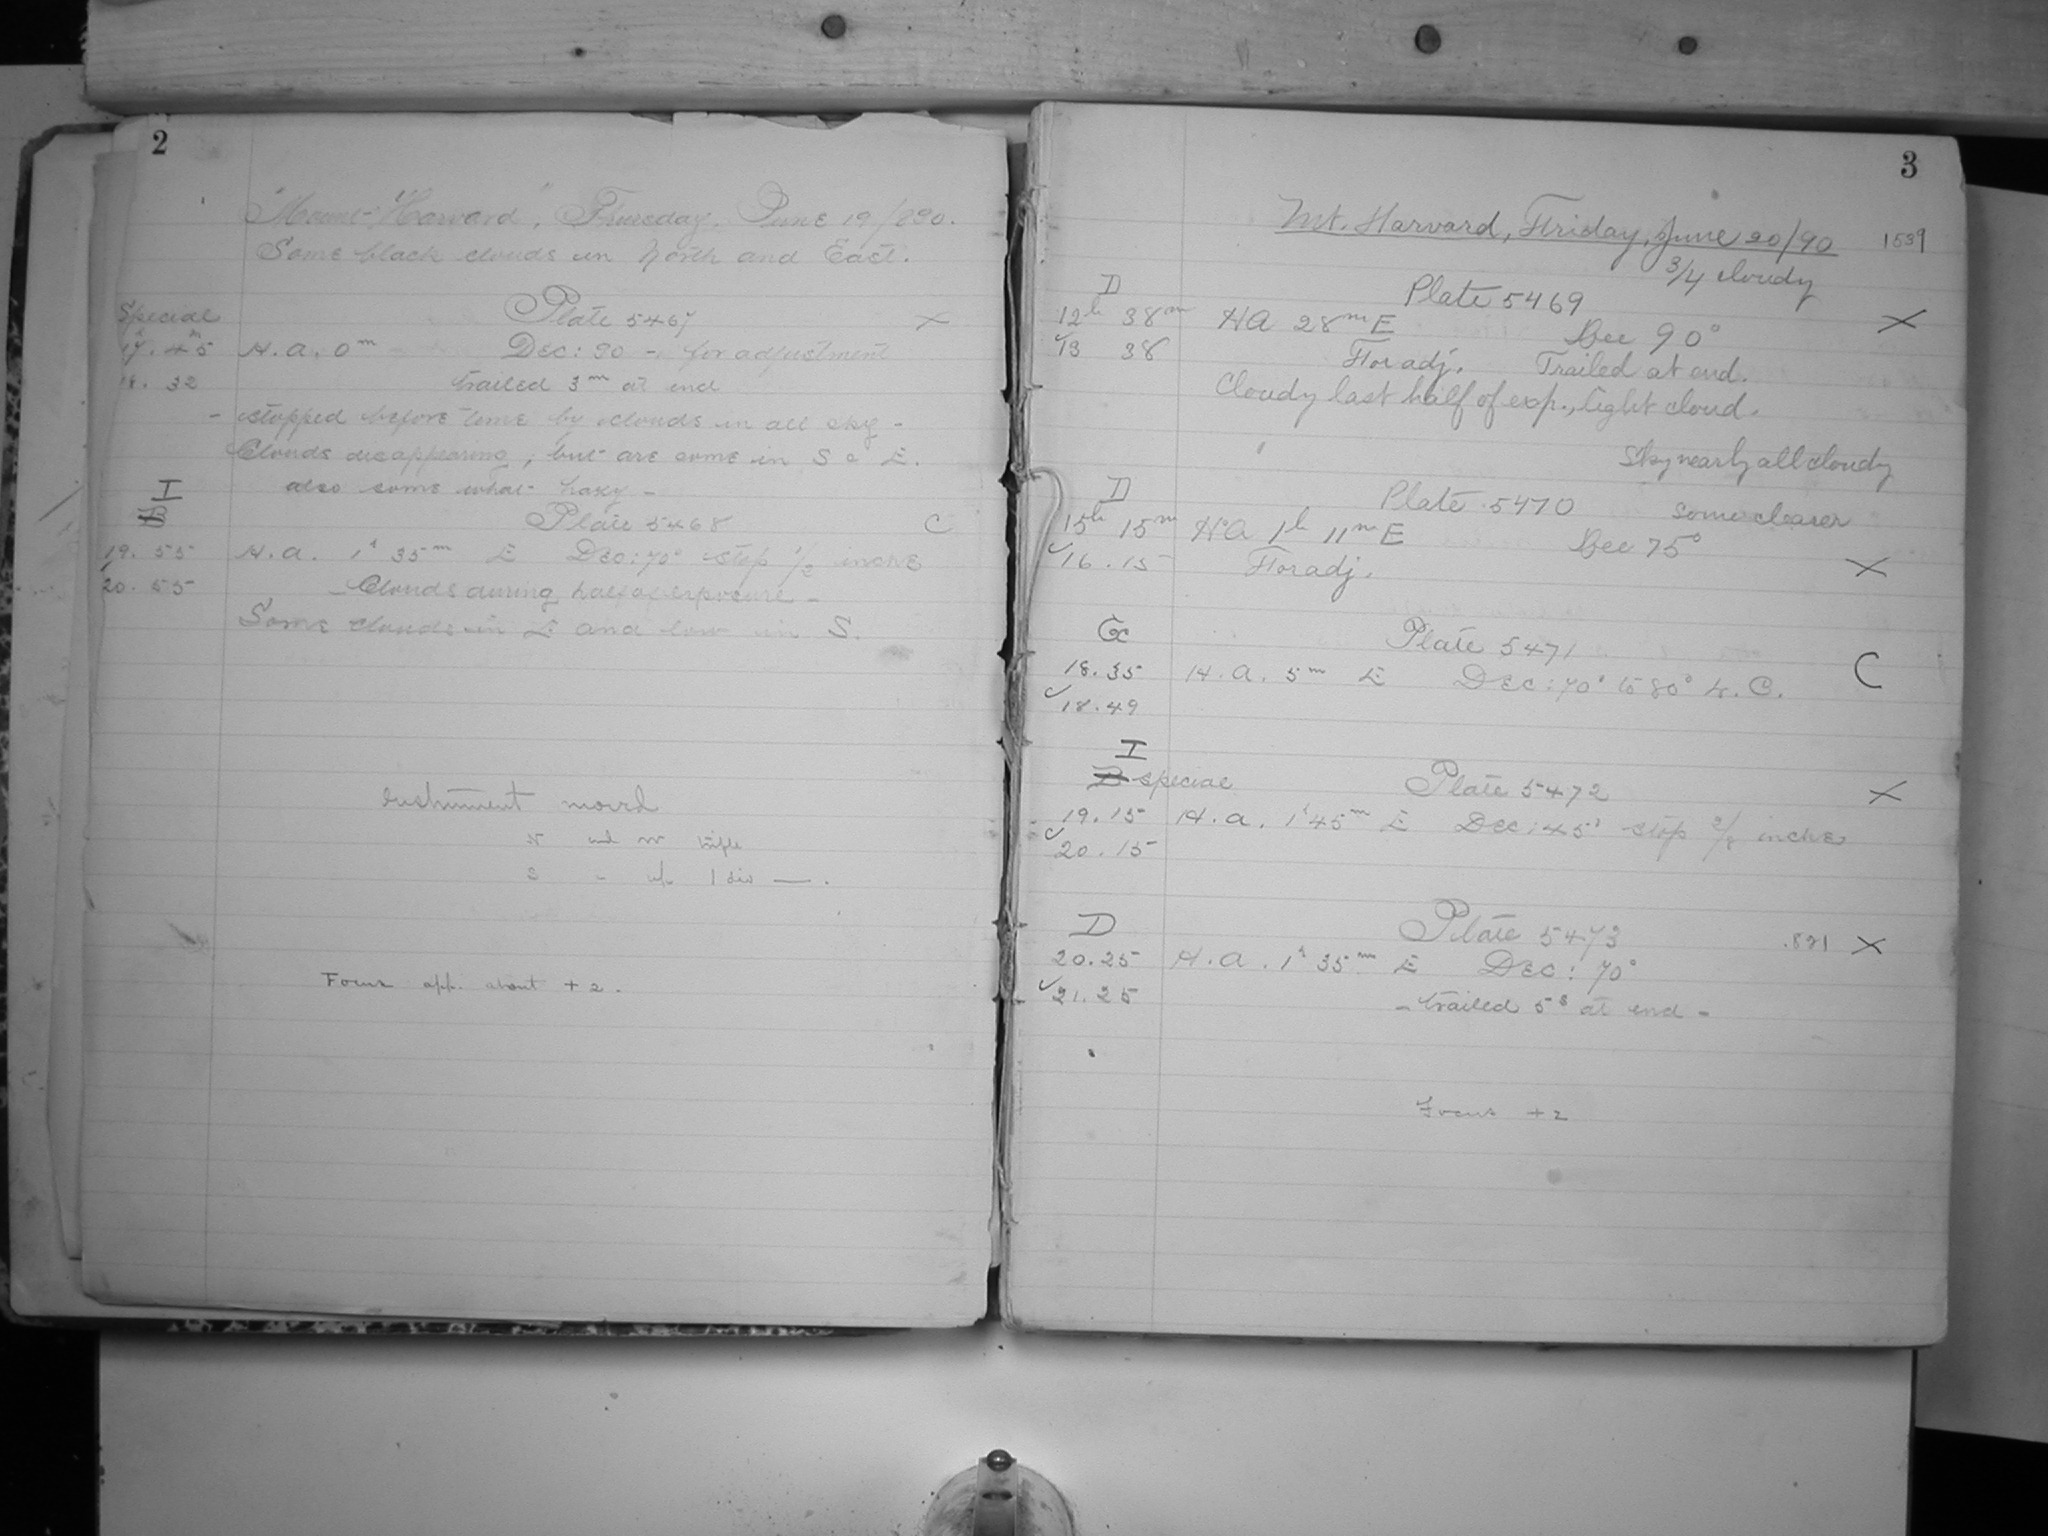 2
"Mount Harvard", Thursday, June 19/890.
Some black clouds in North and East.
Special
Plate 5467 X
17.h 45m H.A. 0m Dec: 90 - for adjustment
18. 32 trailed 3m at end
- stopped before time by clouds in all sky -
Clouds disappearing, but are some in S & E.
also some what hazy -
I
B Plate 5468 C
19. 55 H.A. 1h 35m E Dec: 70° stop 1/2 inch
20. 55 - Clouds during half of exposure -
Some clouds in E and low in S.
Instrument moved
N end W triple
S " up 1 div —.
Focus app. about +2.
3
Mt. Harvard, Friday, June 20/90 1539
3/4 cloudy
D Plate 5469 X
12h 38m HA 28m E Dec 90°
13 38 For adj. Trailed at end.
Cloudy last half of exp., light cloud.
Sky nearly all cloudy
D Plate 5470 some clearer
15h 15m HA 1h 11m E Dec 75°
16.15 For adj. X
Plate 5471
18.35 H.A. 5m E Dec: 70° to 80° L.C. C
18.49
I
B special Plate 5472 X
19.15 H.A. 1h 45m E Dec: 45° stop inch
20.15
D Plate 5473 .821 X
20.25 H.A. 1h 35m E Dec: 70°
21.25 - trailed 5s at end -
Focus +2